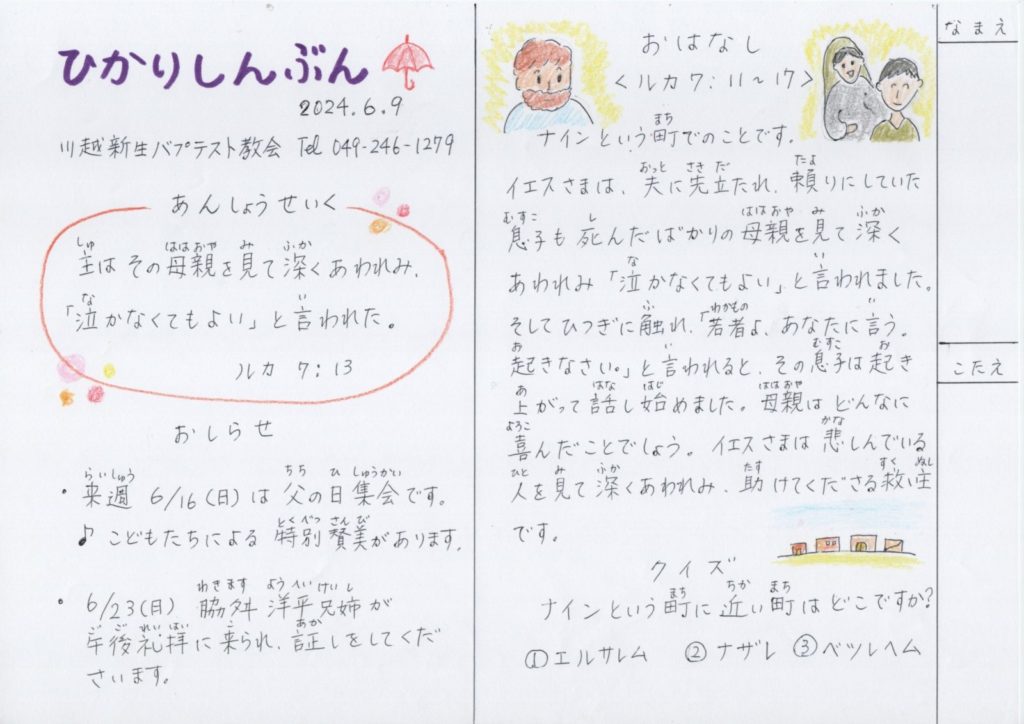 ひかりしんぶん
2024.6.9
川越新生バプテスト教会 Tel 049-246-1279
あんしょうせいく
主はその母親を見て深くあわれみ、
「泣かなくてもよい」と言われた。
ルカ 7:13
おしらせ
・来週 6/16(日)は父の日集会です。
♪こどもたちによる特別賛美があります。
・6/23(日) 脇舛 洋平兄姉が
午後礼拝に来られ、証しをしてくだ
さいます。
おはなし
<ルカ7:11〜17>
ナインという町でのことです。
イエスさまは、夫に先立たれ、頼りにしていた
息子も死んだばかりの母親を見て深く
あわれみ「泣かなくてもよい」と言われました。
そしてひつぎに触れ、「若者よ、あなたに言う。
起きなさい。」と言われると、その息子は起き
上がって話し始めました。母親はどんなに
喜んだことでしょう。イエスさまは悲しんでいる
人を見て深くあわれみ、助けてくださる救い主
です。
クイズ
ナインという町に近い町はどこですか?
①エルサレム ②ナザレ ③ベツレヘム
なまえ
こたえ